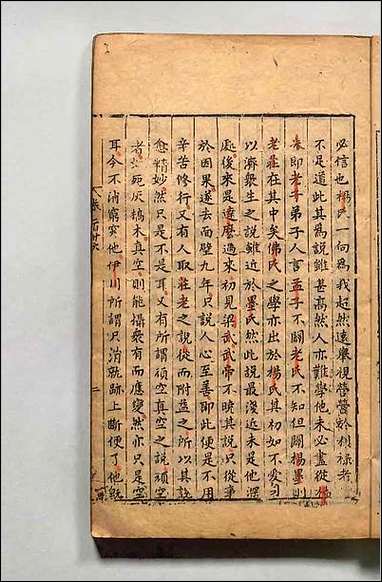 必信也楊氏一向為我超然遠舉視營營於利祿者
不足道此其為說雖甚高然人亦難學他未必盡從楊
朱即老子弟子人言孟子不闢老氏不知但闢楊墨則
老莊在其中矣佛氏之學亦出於楊氏其初如不愛身
以濟衆生之說雖近於墨氏然此說最淺近未是他深
處後來是達磨過來初見梁武武帝不曉其說只從事
於因果遂去面壁九年只說人心至善即此便是不用
辛苦修行又有人取莊老之說從而附益之所以其說
愈精妙然只是不是耳又有所謂頑空真空之說頑空
者如死灰槁木真空則能攝衆有而應變然亦只是空
耳今不消窮究他伊川所謂只消就跡上斷便了他既
二